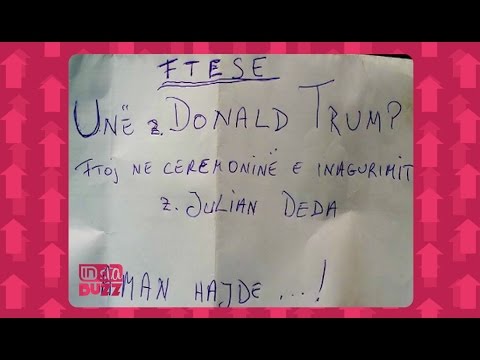 FTESE
UNË z. DONALD TRUMP
FTOJ NE CEREMONINË E INAGURIMIT
z. JULIAN DEDA
AMAN HAJDE ...!
INSTA
BUZZ